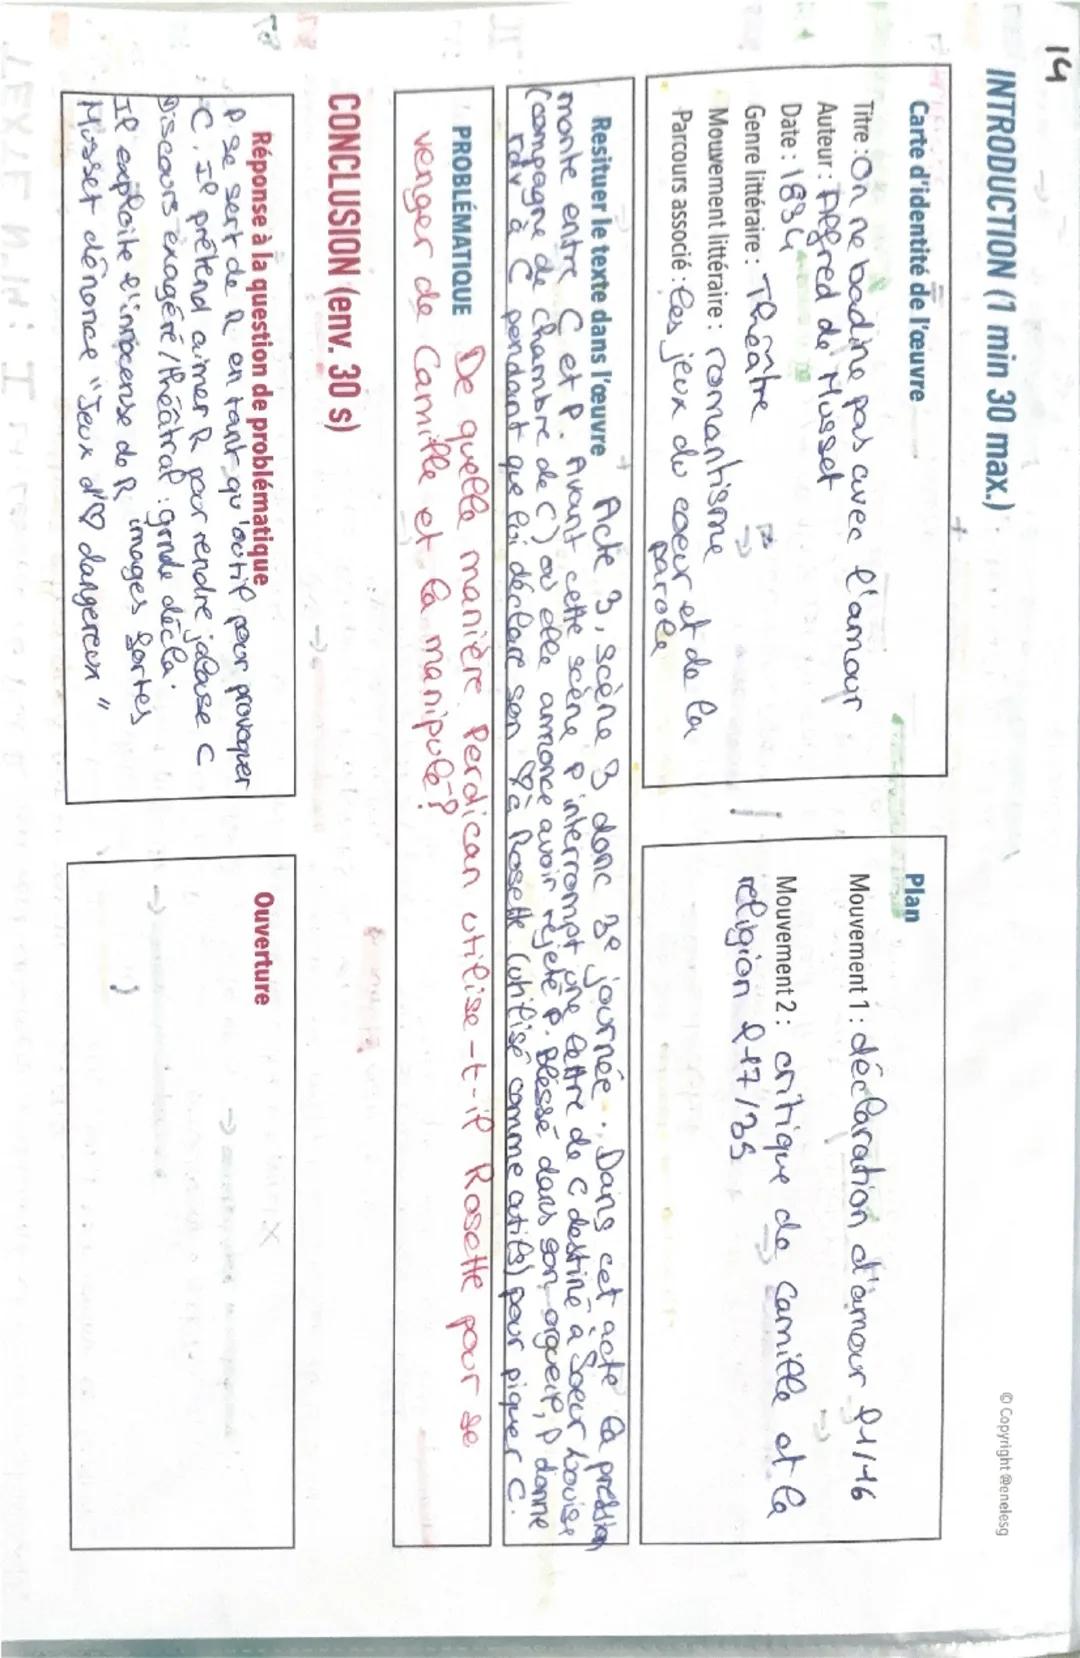 14
INTRODUCTION (1 min 30 max.)
© Copyright @enelesg
Carte d'identité de l'œuvre
Titre : On ne badine pas avec l'amour
Auteur : Alfred de Musset
Date : 1834
Genre littéraire : Théatre
Mouvement littéraire : romantisme
Parcours associé : les jeux du coeur et de la
parole
Plan
Mouvement 1 : déclaration d'amour l1/16
Mouvement 2 : critique de Camille et la
religion l17/35
Resituer le texte dans l'œuvre Acte 3, scène 3 donc 3e journée. Dans cet acte la pression
monte entre C et P. Avant cette scène P interrompt une lettre de C destiné à Soeur Louise
(compagne de chambre de C) où elle annonce avoir rejeté P. Blessé dans son orgueil, P donne
rdv à C pendant que lui déclare son ♡ à Rosette (utilisé comme outils) pour piquer C.
PROBLÉMATIQUE De quelle manière Perdican utilise-t-il Rosette pour se
venger de Camille et la manipule ?
CONCLUSION (env. 30 s)
Réponse à la question de problématique
P se sert de R en tant qu'outil pour provoquer
C. Il prétend aimer R pour rendre jalouse C
Discours exagéré/théâtral : grnde décla.
Il exploite l'innocense de R images fortes
Musset dénonce "Jeux d'♡ dangereux"
Ouverture